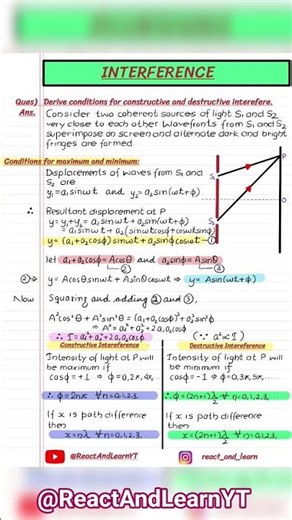 INTERFERENCE
Ques) Derive conditions for constructive and destructive interefere.
Ans. Consider two coherent sources of light S₁ and S₂
very close to each other wavefronts from S₁ and S₂
superimpose on screen and alternate dark and bright
fringes are formed
Conditions for maximum and minimum:
Displacements of waves from S₁ and
S₂ are
y₁=a₁sinωt and y₂=a₂sin(ωt+ϕ)
∴ Resultant displacement at P
y=y₁+y₂=a₁sinωt+a₂sin(ωt+ϕ)
=a₁sinωt+a₂(sinωtcosϕ+cosωtsinϕ)
y=(a₁+a₂cosϕ)sinωt+a₂sinϕcosωt-①
P
S₁
O
S₂
let a₁+a₂cosϕ=Acosθ and a₂sinϕ=Asinθ
② ③
①⇒ y=Acosθsinωt+Asinθcosωt ⇒ y=Asin(ωt+ϕ)
Now Squaring and adding ② and ③,
A²cos²θ+A²sin²θ=(a₁+a₂cosϕ)²+a₂²sin²ϕ
⇒ A²=a₁²+a₂²+2a₁a₂cosϕ
∴ I=a₁²+a₂²+2a₁a₂cosϕ (∵ a²∝I)
Constructive Interference
Intensity of light at P will
be maximum if
cosϕ=+1 ⇒ ϕ=0,2π,4π,..
∴ ϕ=2nπ ∀n=0,1,2,3,
If x is path difference
then
x=nλ ∀n=0,1,2,3,
Destructive Intereference
Intensity of light at P will
be minimum if
cosϕ=-1 ⇒ϕ=0,3π,5π,....
∴ϕ=(2n+1)λ/2 ∀n=0,1,2,3,
If x is path difference
then
x=(2n+1)λ/2 ∀n=0,1,2,3,
@ReactAndLearnYT
react_and_learn
@ReactAndLearnYT